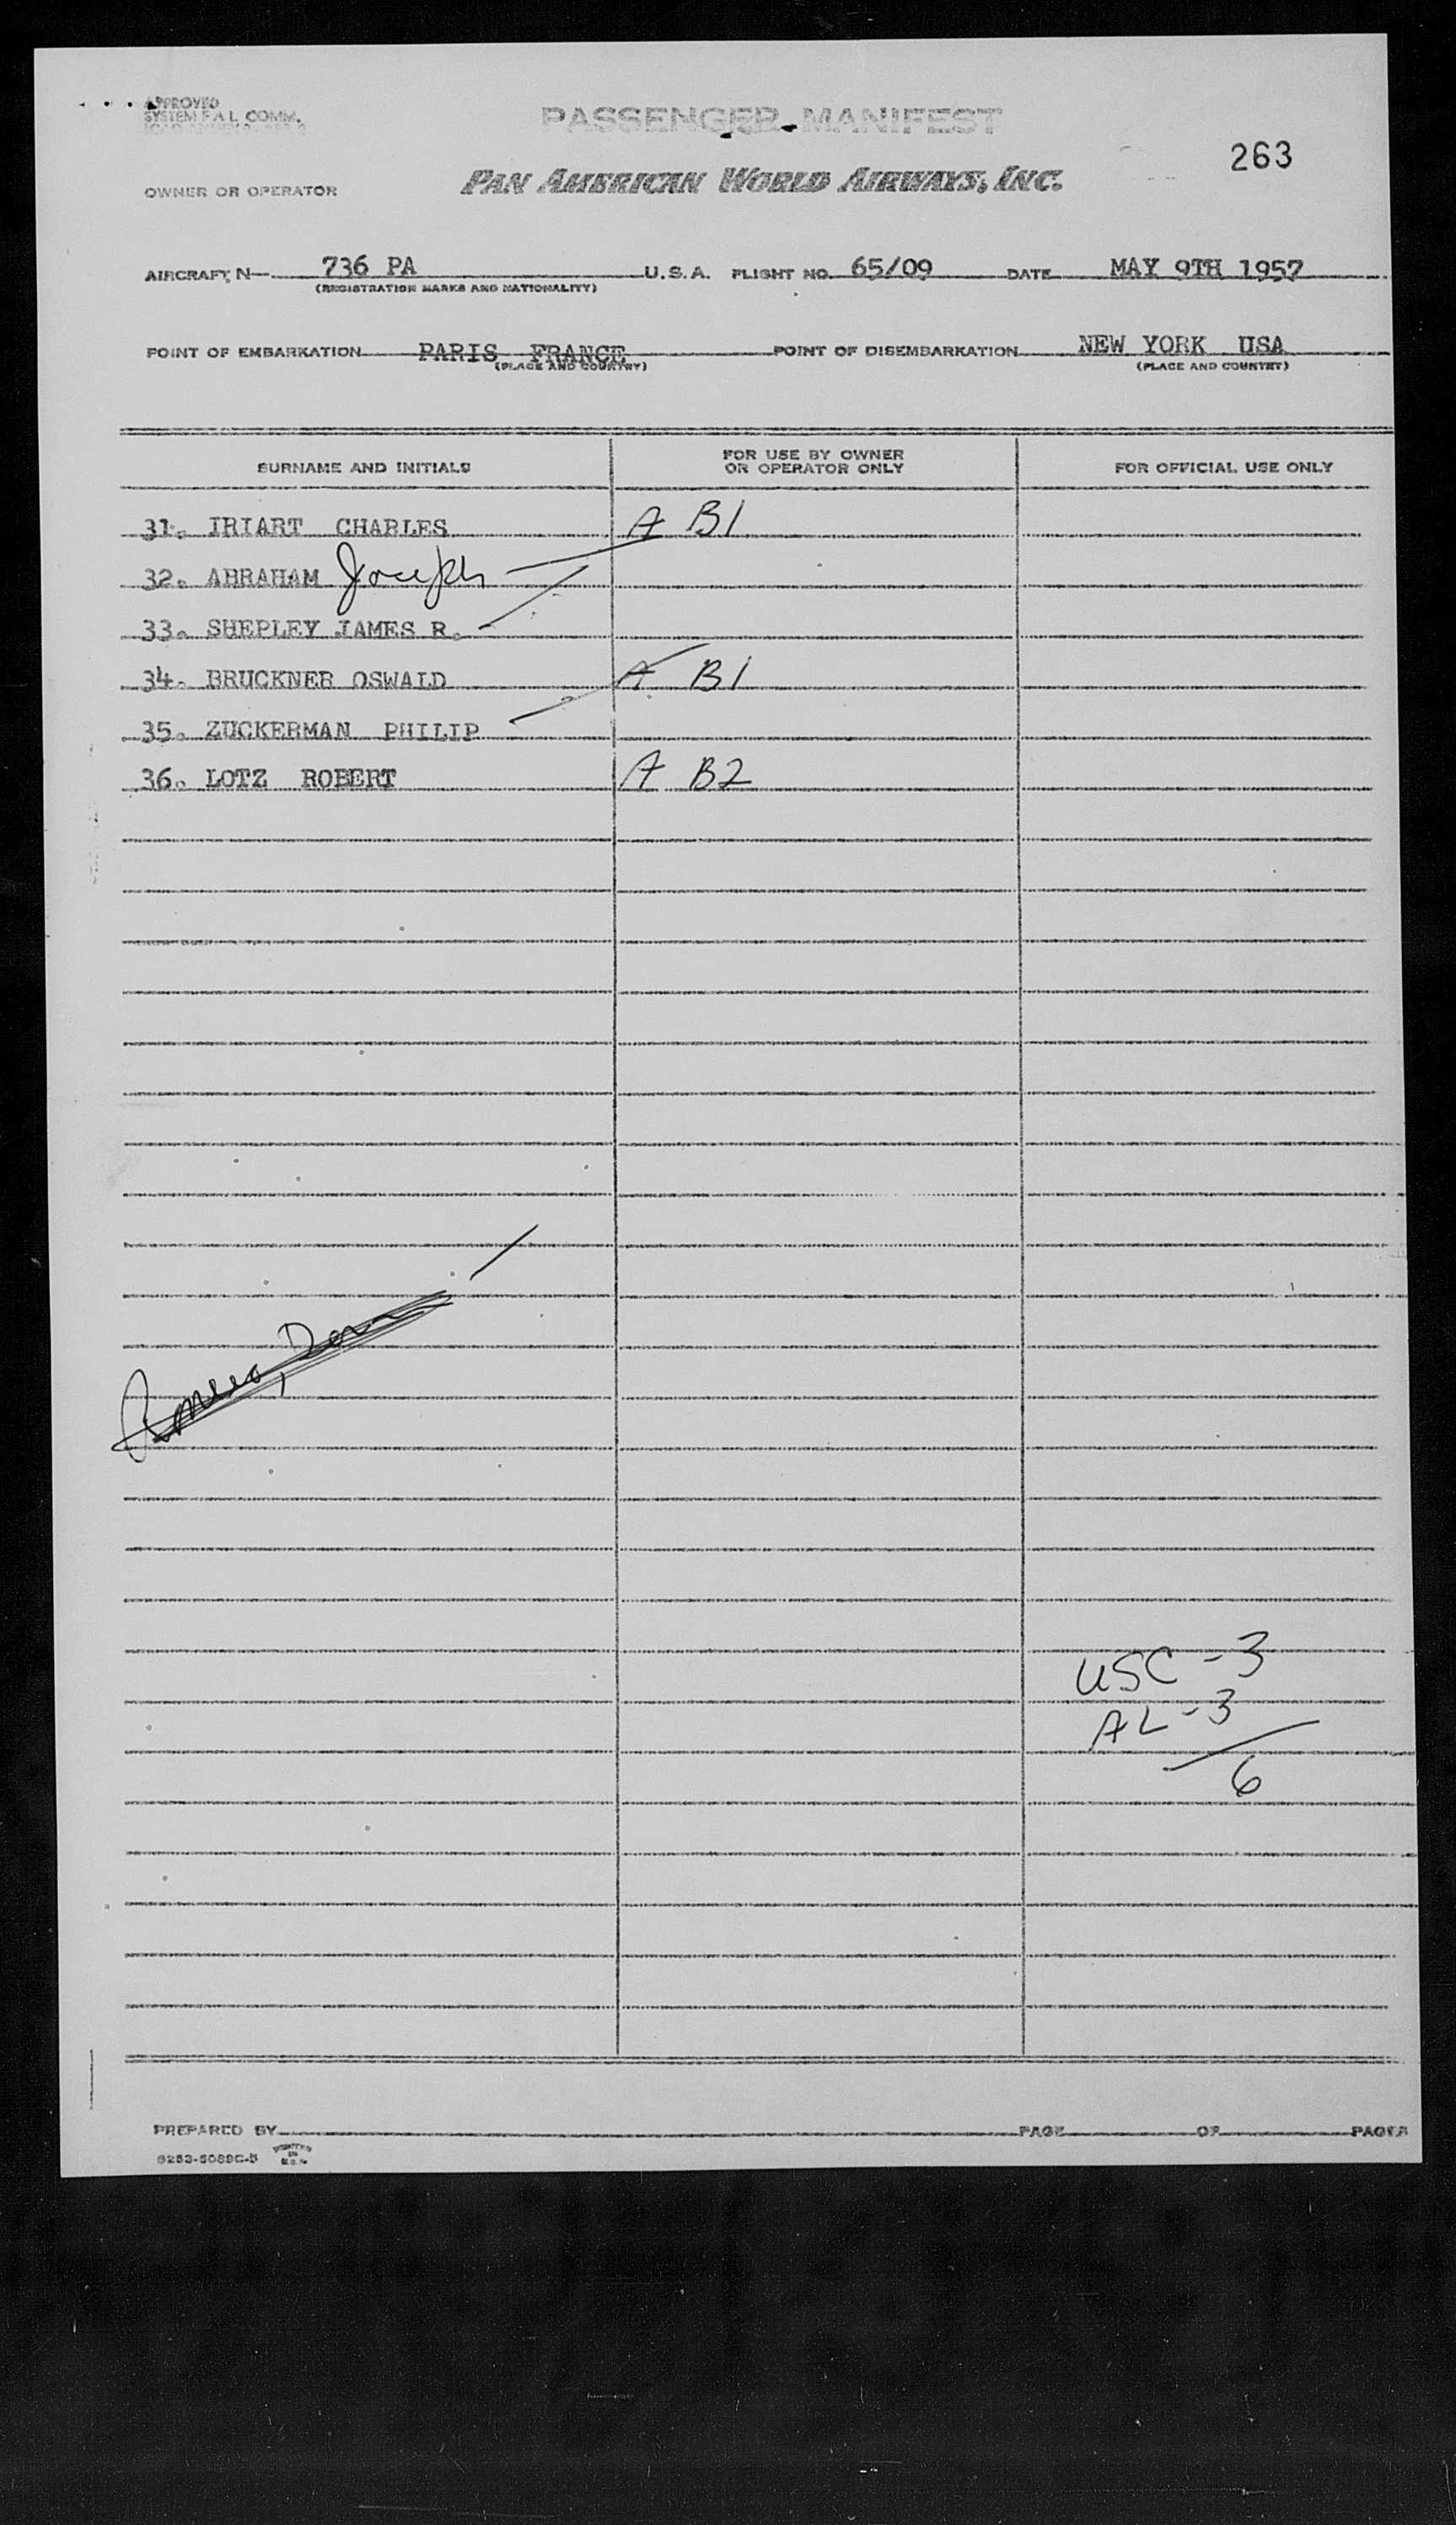 APPROVED
SYSTEM F A L COMM.
PASSENGER MANIFEST
263
OWNER OR OPERATOR
PAN AMERICAN WORLD AIRWAYS, INC.
AIRCRAFT, N— 736 PA U.S.A. FLIGHT NO. 65/09 DATE MAY 9TH 1957
(REGISTRATION MARKS AND NATIONALITY)
POINT OF EMBARKATION PARIS FRANCE POINT OF DISEMBARKATION NEW YORK USA
(PLACE AND COUNTRY) (PLACE AND COUNTRY)
SURNAME AND INITIALS FOR USE BY OWNER OR OPERATOR ONLY FOR OFFICIAL USE ONLY
31. IRIART CHARLES A B1
32. ABRAHAM Joseph
33. SHEPLEY JAMES R.
34. BRUCKNER OSWALD A B1
35. ZUCKERMAN PHILIP
36. LOTZ ROBERT A B2
USC - 3
AL - 3
6
PREPARED BY PAGE OF PAGES
PRINTED IN U.S.A.